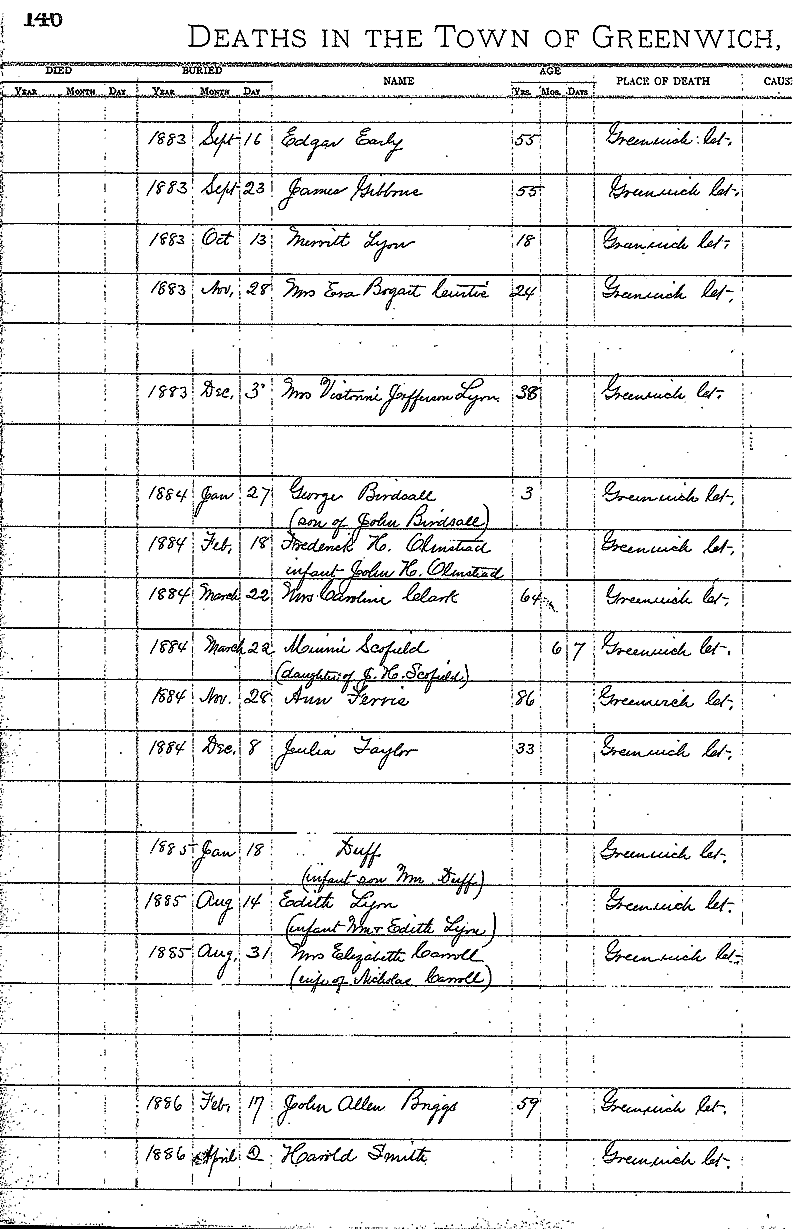 140
DEATHS IN THE TOWN OF GREENWICH,
DIED BURIED NAME AGE PLACE OF DEATH CAUS
YEAR MONTH DAY YEAR MONTH DAY YRS. MOS. DAYS
1883 Sept 16 Edgar Early 55 Greenwich Ct.
1883 Sept 23 James Gibbons 55 Greenwich Ct.
1883 Oct 13 Merritt Lyon 18 Greenwich Ct.
1883 Nov. 28 Mrs Eva Bogart 24 Greenwich Ct.
1883 Dec. 3 Mrs Jefferson Lyon 38 Greenwich Ct.
1884 Jan 27 George Birdsall 3 Greenwich Ct.
(son of John Birdsall)
1884 Feb. 18 Frederick H. Olmstead Greenwich Ct.
infant John H. Olmstead
1884 March 22 Mrs Caroline Clark 64 Greenwich Ct.
1884 March 22 Minnie Scofield 6 7 Greenwich Ct.
(daughter of J. H. Scofield)
1884 Nov. 28 Ann Ferris 86 Greenwich Ct.
1884 Dec. 8 Julia Taylor 33 Greenwich Ct.
1885 Jan 18 Duff Greenwich Ct.
(infant son Wm. Duff)
1885 Aug 14 Edith Lyon Greenwich Ct.
(infant Wm & Edith Lyon)
1885 Aug. 31 Mrs Elizabeth Carroll Greenwich Ct.
(wife of Nicholas Carroll)
1886 Feb. 17 John Allen Briggs 59 Greenwich Ct.
1886 April 2 Harold Smith Greenwich Ct.